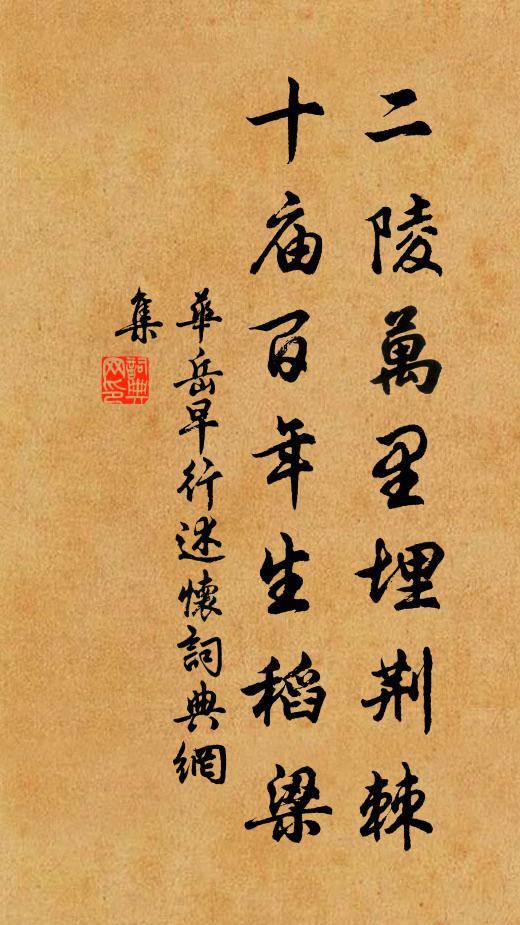 二陵萬里埋荆棘
十庙百年生稻粱
華岳早行述懷詞典網
集
詞典
网印